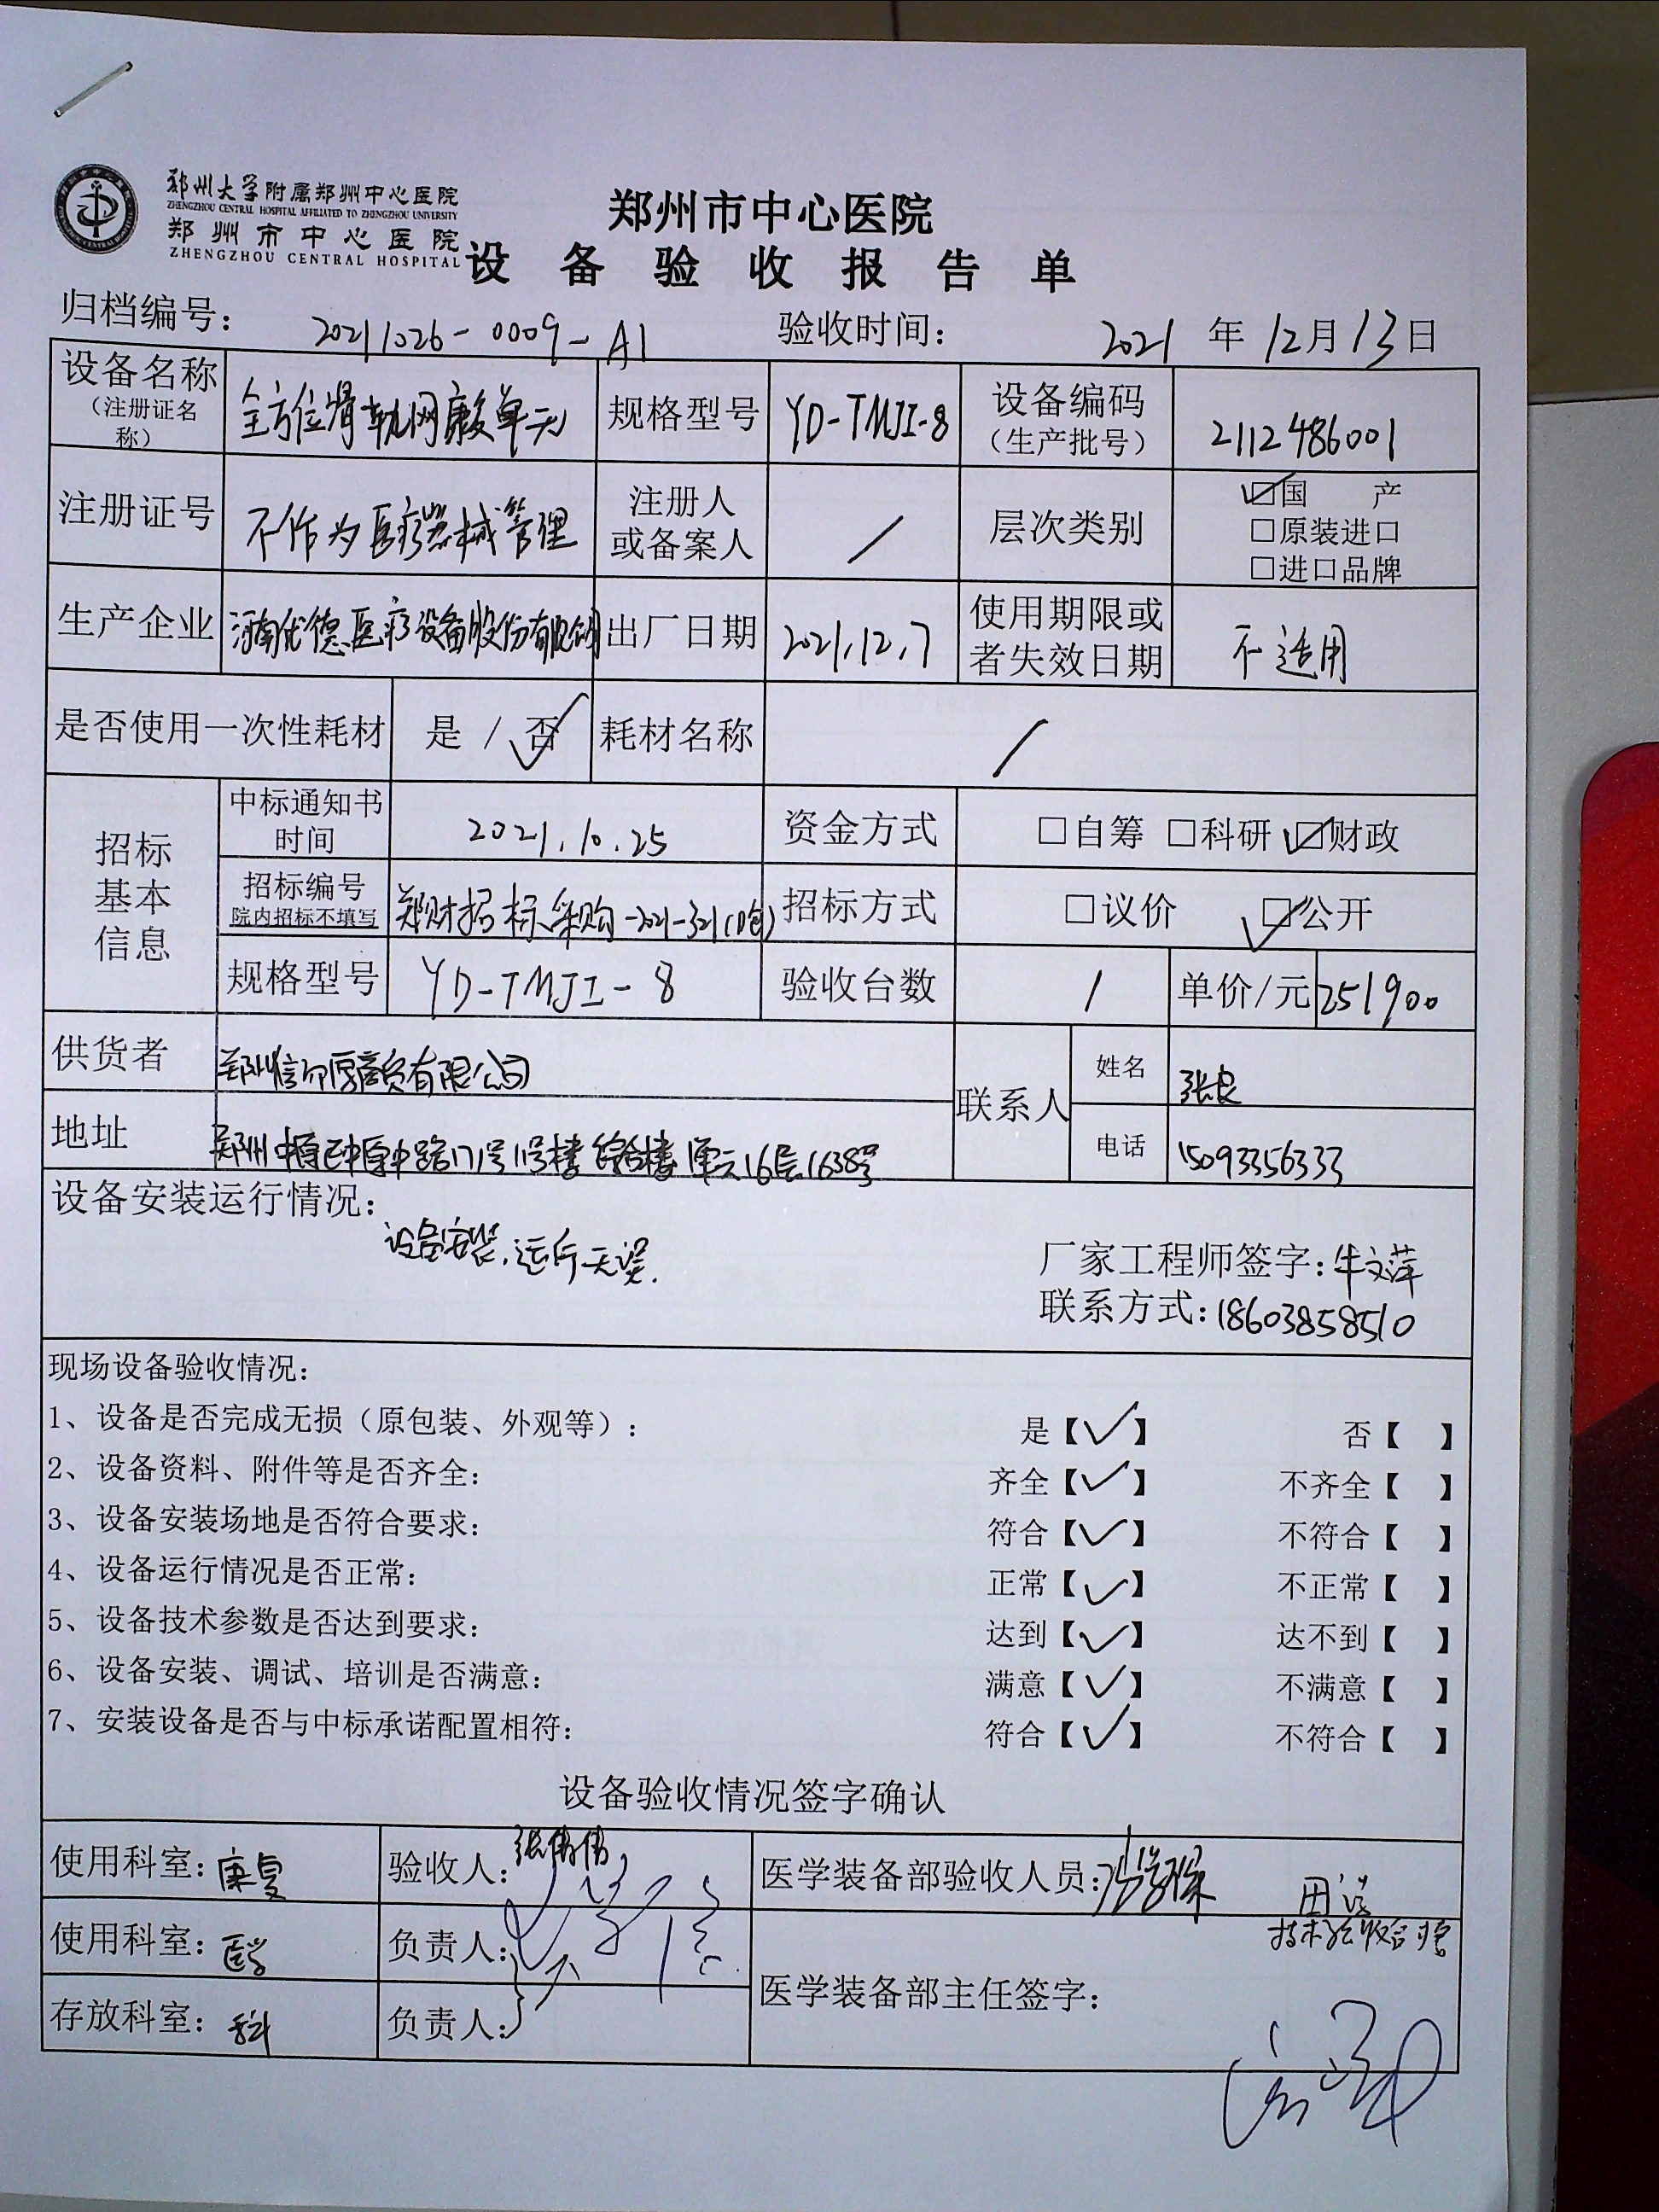 郑州大学附属郑州中心医院
ZHENGZHOU CENTRAL HOSPITAL AFFILIATED TO ZHENGZHOU UNIVERSITY
郑州市中心医院
ZHENGZHOU CENTRAL HOSPITAL
郑州市中心医院
设备验收报告单
归档编号： 20211026-0009-A1 验收时间： 2021 年 12 月 13 日
设备名称（注册证名称） 全方位骨轨网康复单元 规格型号 YD-TMJI-8 设备编码（生产批号） 2112486001
注册证号 不作为医疗器械管理 注册人或备案人 / 层次类别 ☑国 产
□原装进口
□进口品牌
生产企业 河南优德医疗设备股份有限公司 出厂日期 2021.12.7 使用期限或者失效日期 不适用
是否使用一次性耗材 是 / 否 ✓ 耗材名称 /
招标基本信息
中标通知书时间 2021.10.25 资金方式 □自筹 □科研 ☑财政
招标编号 院内招标不填写 郑财招标采购-2021-321(10包) 招标方式 □议价 ☑公开
规格型号 YD-TMJI-8 验收台数 1 单价/元 251900
供货者 郑州信尔厚商贸有限公司 联系人 姓名 张良
地址 郑州中原区中原中路171号11号楼综合楼1单元16层1638号 电话 15093356333
设备安装运行情况：
设备安装.运行无误.
厂家工程师签字：牛文萍
联系方式：18603858510
现场设备验收情况：
1、设备是否完成无损（原包装、外观等）： 是【✓】 否【 】
2、设备资料、附件等是否齐全： 齐全【✓】 不齐全【 】
3、设备安装场地是否符合要求： 符合【✓】 不符合【 】
4、设备运行情况是否正常： 正常【✓】 不正常【 】
5、设备技术参数是否达到要求： 达到【✓】 达不到【 】
6、设备安装、调试、培训是否满意： 满意【✓】 不满意【 】
7、安装设备是否与中标承诺配置相符： 符合【✓】 不符合【 】
设备验收情况签字确认
使用科室：康复 验收人：张倩倩 医学装备部验收人员：
技术验收合格
使用科室：医学 负责人：
医学装备部主任签字：
存放科室：科 负责人：